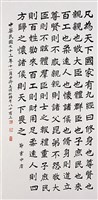 凡為天下國家有九經曰修身也尊賢也
親親也敬大臣也體群臣也子庶民也來
百工也柔遠人也懷諸侯也修身則道立
尊賢則不惑親親則諸父昆弟不怨敬大
臣則不眩體群臣則士之報禮重子庶民
則百姓勸來百工則財用足柔遠人則四
方歸之懷諸侯則天下畏之
中華民國